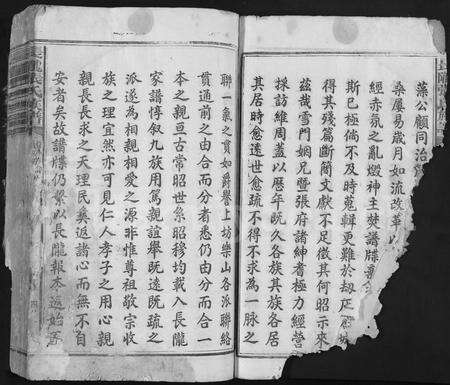 藻公顧同治
桑屢易歲月如流改革以
經赤氛之亂燬神主焚譜牒
斯已極倘不及時蒐輯更難於劫灰
得其殘篇斷簡文獻不足徵其何昭示來
茲哉雪門姻兄暨張府諸紳耆極力經營
採訪維周蓋以歷年旣久各族其族各居
其居時愈遠世愈疏不得不求為一脉之
聯一氣之貫如爵譽上坊樂山各派聯絡
貫通前之由合而分者悉仍由分而合一
本之親亘古常昭世系昭穆均載入長隴
家譜惇叙九族用篤親誼舉旣遠旣疏之
派遂為相親相愛之源非惟尊祖敬宗收
族之理宜然亦可見仁人孝子之用心親
親長長求之天理民彝返諸心而無不自
安者矣故譜牒仍繫以長隴報本返始